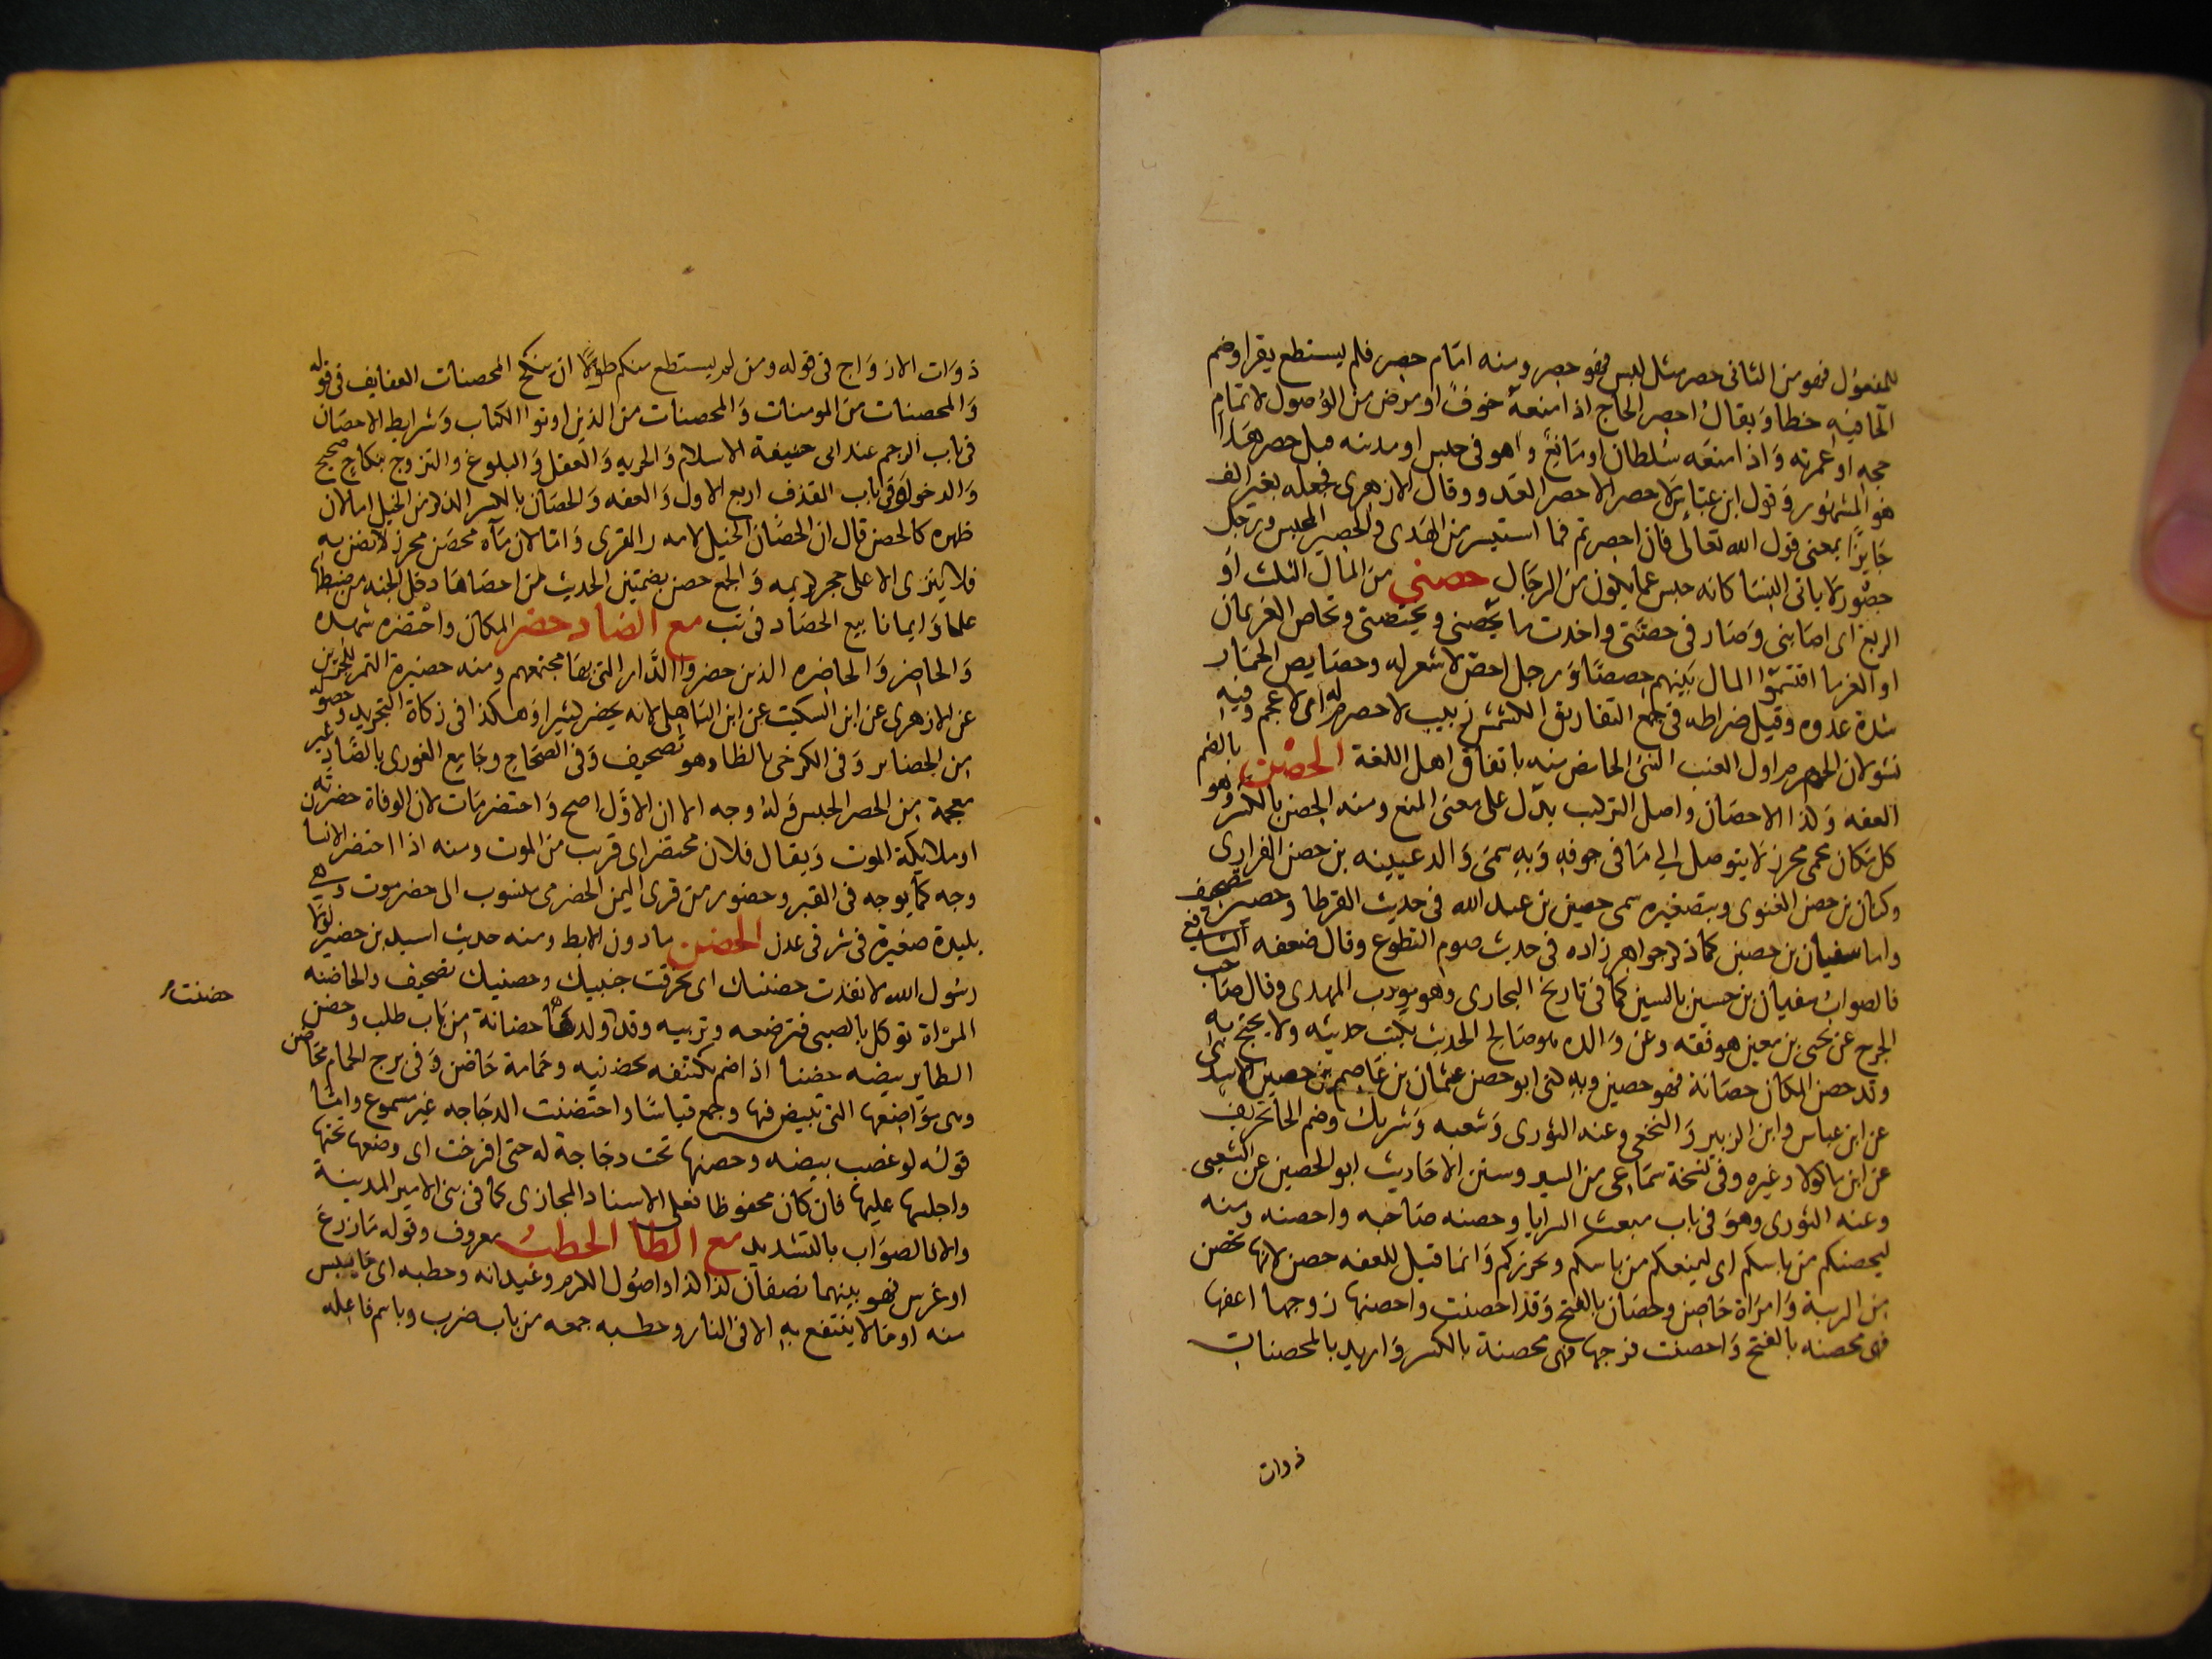 للمفعول فهو من الثاني حصر مثل لبس فهو حصر ومنه امام حصر فلم يستطع يقرا وضم
الحا فيه خطا ويقال احصر الحاج اذا منعه خوف او مرض من الوصول لاتمام
حجه او عمرته واذا منعه سلطان او مانع وهو في حبس او مدينه قيل حصر هذا
هو المشهور وقول ابن عباس لا حصر الا حصر العدو وقال الازهري فجعله بغير الف
جايزا بمعنى قول الله تعالى فان احصرتم فما استيسر من الهدى والحصير المحبس ورجل
حصور لا ياتي النسا كانه حبس عما يكون من الرجال حصني من المال الثلث او
الربع اي اصابني وصار في حصتي واخذت ما يحصني ويختصني وتحاص الغريمان
او الغرما اقتسموا المال بينهم حصصا ورجل احص لا شعر له وحصايص الحمار
شدة عدوه وقيل ضراطه في جمع التفاريق الكشمش زبيب لا حصرم له اي لا عجم وفيه
نسولان الحصرم اول العنب التي الحامض منه باتفاق اهل اللغة الحصن بالضم
العفه وكذا الاحصان واصل التركيب يدل على معنى المنع ومنه الحصن بالكسر وهو
كل مكان محمى محرز لا يتوصل الي ما في جوفه وبه سمى والد عيينه بن حصن الفزاري
وكنان بن حصن الغنوى وبتصغيره سمى حصين بن عبد الله في حديث القرطا وحصين تصحيف
واما سفيان بن حصين كما ذكر خواهر زاده في حديث صوم التطوع وقال ضعفه الشافعي
فالصواب سفيان بن حسين بالسين كما في تاريخ البخاري وهو مودب المهدى وقال صاحب
الجرح عن يحيى بن معين هو ثقه وعن والده هو صالح الحديث يكتب حديثه ولا يحتج به
وقد حصن المكان حصانة فهو حصين وبه كنى ابو حصن عثمان بن عاصم بن حصين الاسدي
عن ابن عباس وابن الزبير والنخعي وعنه الثورى وشعبه وشريك وضم الحا تحريف
عن ابن ماكولا وغيره وفي نسخة سماعي من السير وسنن الاحاديث ابو الحصين عن الشعبي
وعنه الثورى وهو في باب مبعث السرايا وحصنه صاحبه واحصنه ومنه
ليحصنكم من باسكم اي ليمنعكم من باسكم ويحرزكم وانما قيل للعفه حصن لانها تحصن
من الريبة وامراة حاصن وحصان بالفتح وقد احصنت واحصنها زوجها اعفها
فهي محصنه بالفتح واحصنت فرجها فهي محصنة بالكسر واريد بالمحصنات
ذوات
ذوات الازواج في قوله ومن لم يستطع منكم طولا ان ينكح المحصنات العفايف في قوله
والمحصنات من المومنات والمحصنات من الذين اوتوا الكتاب وشرايط الاحصان
في باب الرجم عند ابى حنيفة الاسلام والحريه والعقل والبلوغ والتزوج بنكاح صحيح
والدخول وفي باب القذف اربع الاول والعفه والحصان بالكسر الذكر من الخيل اما لان
ظهره كالحصن قال ان الحصان الخيل لامه را القرى واما لان ماه محصن محرز لا يضن به
فلا ينزى الا على حجر كريمه والجمع حصن بضمتين الحديث لمن احصاها دخل الجنه من ضبطها
علما وايمانا بيع الحصاد في تب مع الضاد حضر المكان واحتضره شهده
والحاضر والحاضره الذين حضروا الدار التي بها مجتمعهم ومنه حضيرة التمر للجرين
عن الازهرى عن ابن السكيت عن ابن الباهلي لانه يحضر كثيرا وهكذا في زكاة التجريد وحصوله
من الحضاير وفي الكرخى بالظا وهو تصحيف وفي الصحاح وجامع الغورى بالصاد غير
معجمة من الحصر الحبس وله وجه الا ان الاول اصح واحتضر مات لان الوفاة حضرته
او ملايكة الموت ويقال فلان محتضر اى قريب من الموت ومنه اذا احتضر الانسان
وجه كما يوجه في القبر وحضور من قرى اليمن الحضرمي منسوب الى حضرموت وهي
بليدة صغيرة في شرقي عدن الحضن ما دون الابط ومنه حديث اسيد بن حضير لولا
رسول الله لانفذت حضنيك اى خرقت جنبيك وحصنيك تصحيف والحاضنه
المراة توكل بالصبي فترضعه وتربيه وقد ولدها حضانة من باب طلب وحضن
حضنت
الطاير بيضه حضنا اذا ضم يكتنفه بحضنيه وحمامة حاضن وفي برج الحمام محاضن
وهى مواضعها التي تبيض فيها وجمع قياسا واحتضنت الدجاجه غير مسموع وامشا
قوله لو غصب بيضه وحضنها تحت دجاجة له حتى افرخت اى وضعها تحتها
واجلسها عليها فان كان محفوظا فعلى الاسناد المجازى كما في بنى الامير المدينة
والا فالصواب بالتشديد مع الطا الحطب معروف وقوله ما زرع
او غرس فهو بينهما نصفان كذا اذا واصول الكرم وعيدانه وحطبه اى ما يبس
منه او مالا ينتفع به الا في النار وحطبه جمعه من باب ضرب وباسم فاعله